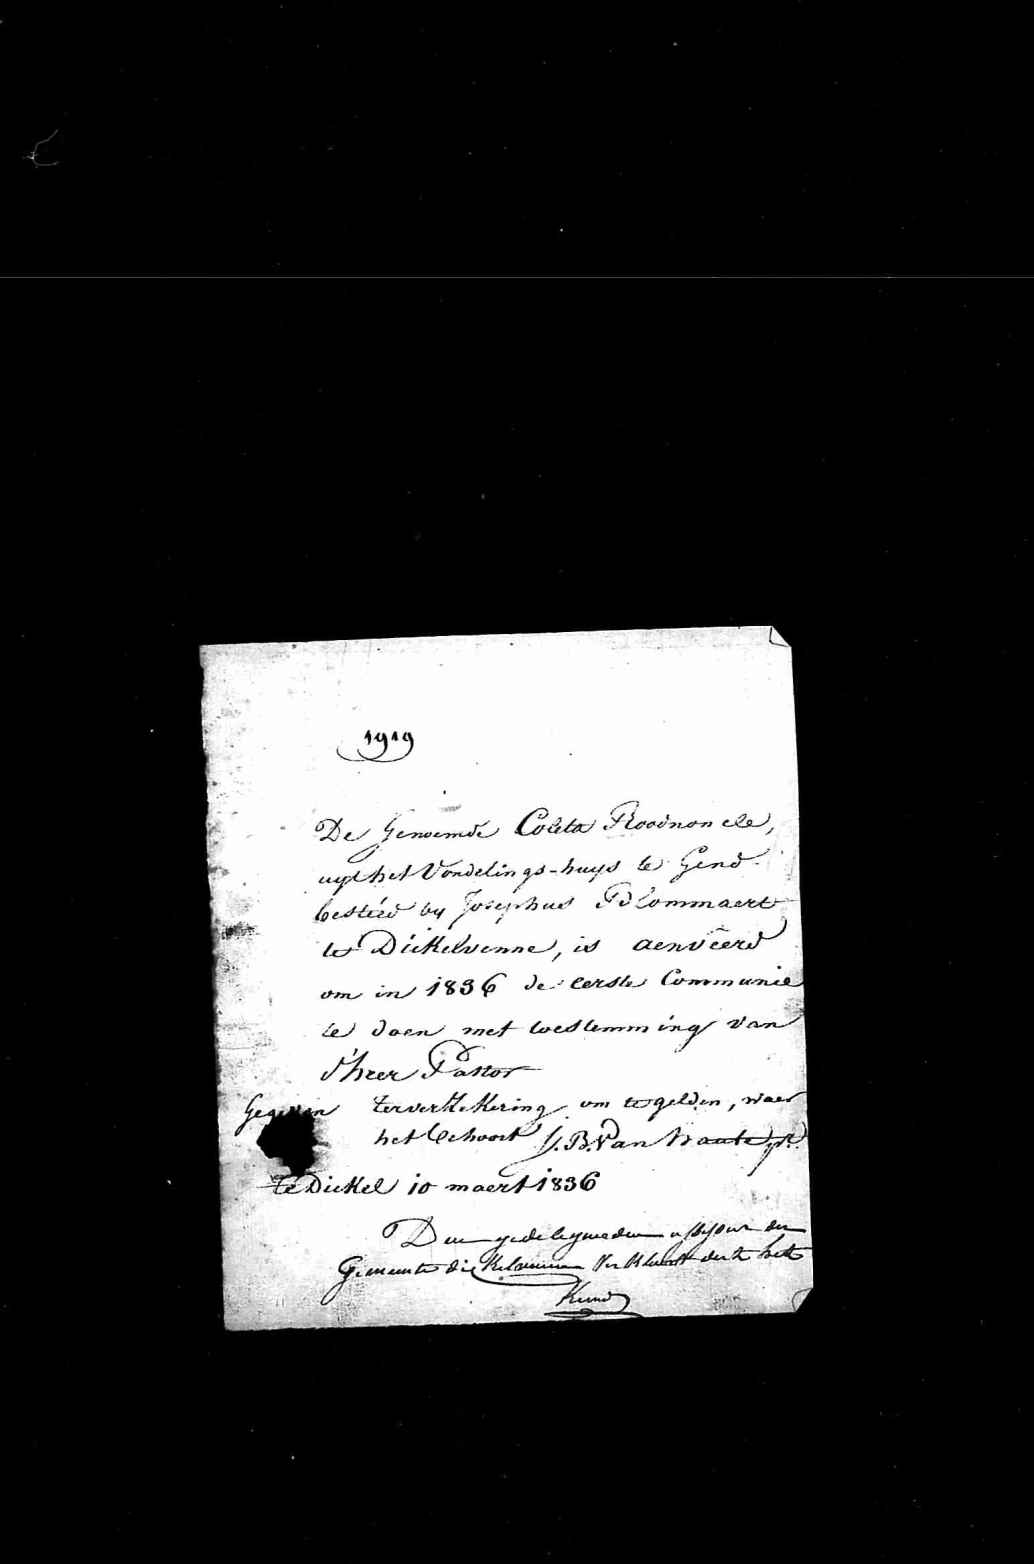 1919
De genoemde Coleta Roodnonele,
uyt het Vondelings-huys te Gend
besteéd by Josephus Blommaert
te Dickelvenne, is aenvéerd
om in 1836 de eerste Communie
te doen met toestemming van
d'heer Pastor
Gegeven ter verzekering om te gelden, waer
het behoort J. B. Van
te Dickel 10 maert 1836
Den gedelegueerden assessor der
Gemeente Dickelvenne